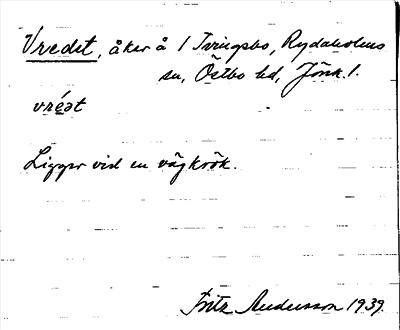 Vredet, åker å 1 Tvingsbo, Rydaholms
sn, Östbo hd, Jönk. l.
vrét
Ligger vid en vägkrök.
Fritz Andersson 1939.